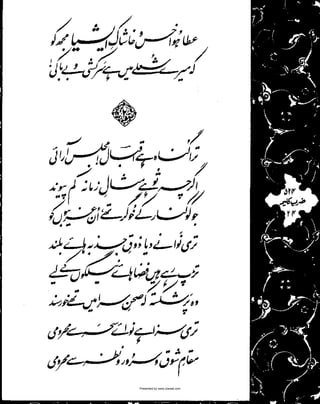 عطا ہوا خس و خاشاکِ ایشیا مجھ کو
کہ میرے شعلے میں ہے سرکشی و بے باکی!
ترا گناہ ہے اقبال! مجلس آرائی
اگرچہ تو ہے مثالِ زمانہ کم پیوند
جو کوکنار کے خوگر تھے ان غریبوں کو
تری نوا نے دیا ذوقِ جذبہ ہائے بلند
تڑپ رہے ہیں فضا ہائے نیلگوں کے لیے
وہ پر شکستہ کہ صحنِ سرا میں تھے خورسند
تری سزا ہے نوائے سحر سے محرومی
مقامِ شوق و سرور و نظر سے محرومی
۵۲۳
ضربِ کلیم
۲۳
Presented by www.ziaraat.com